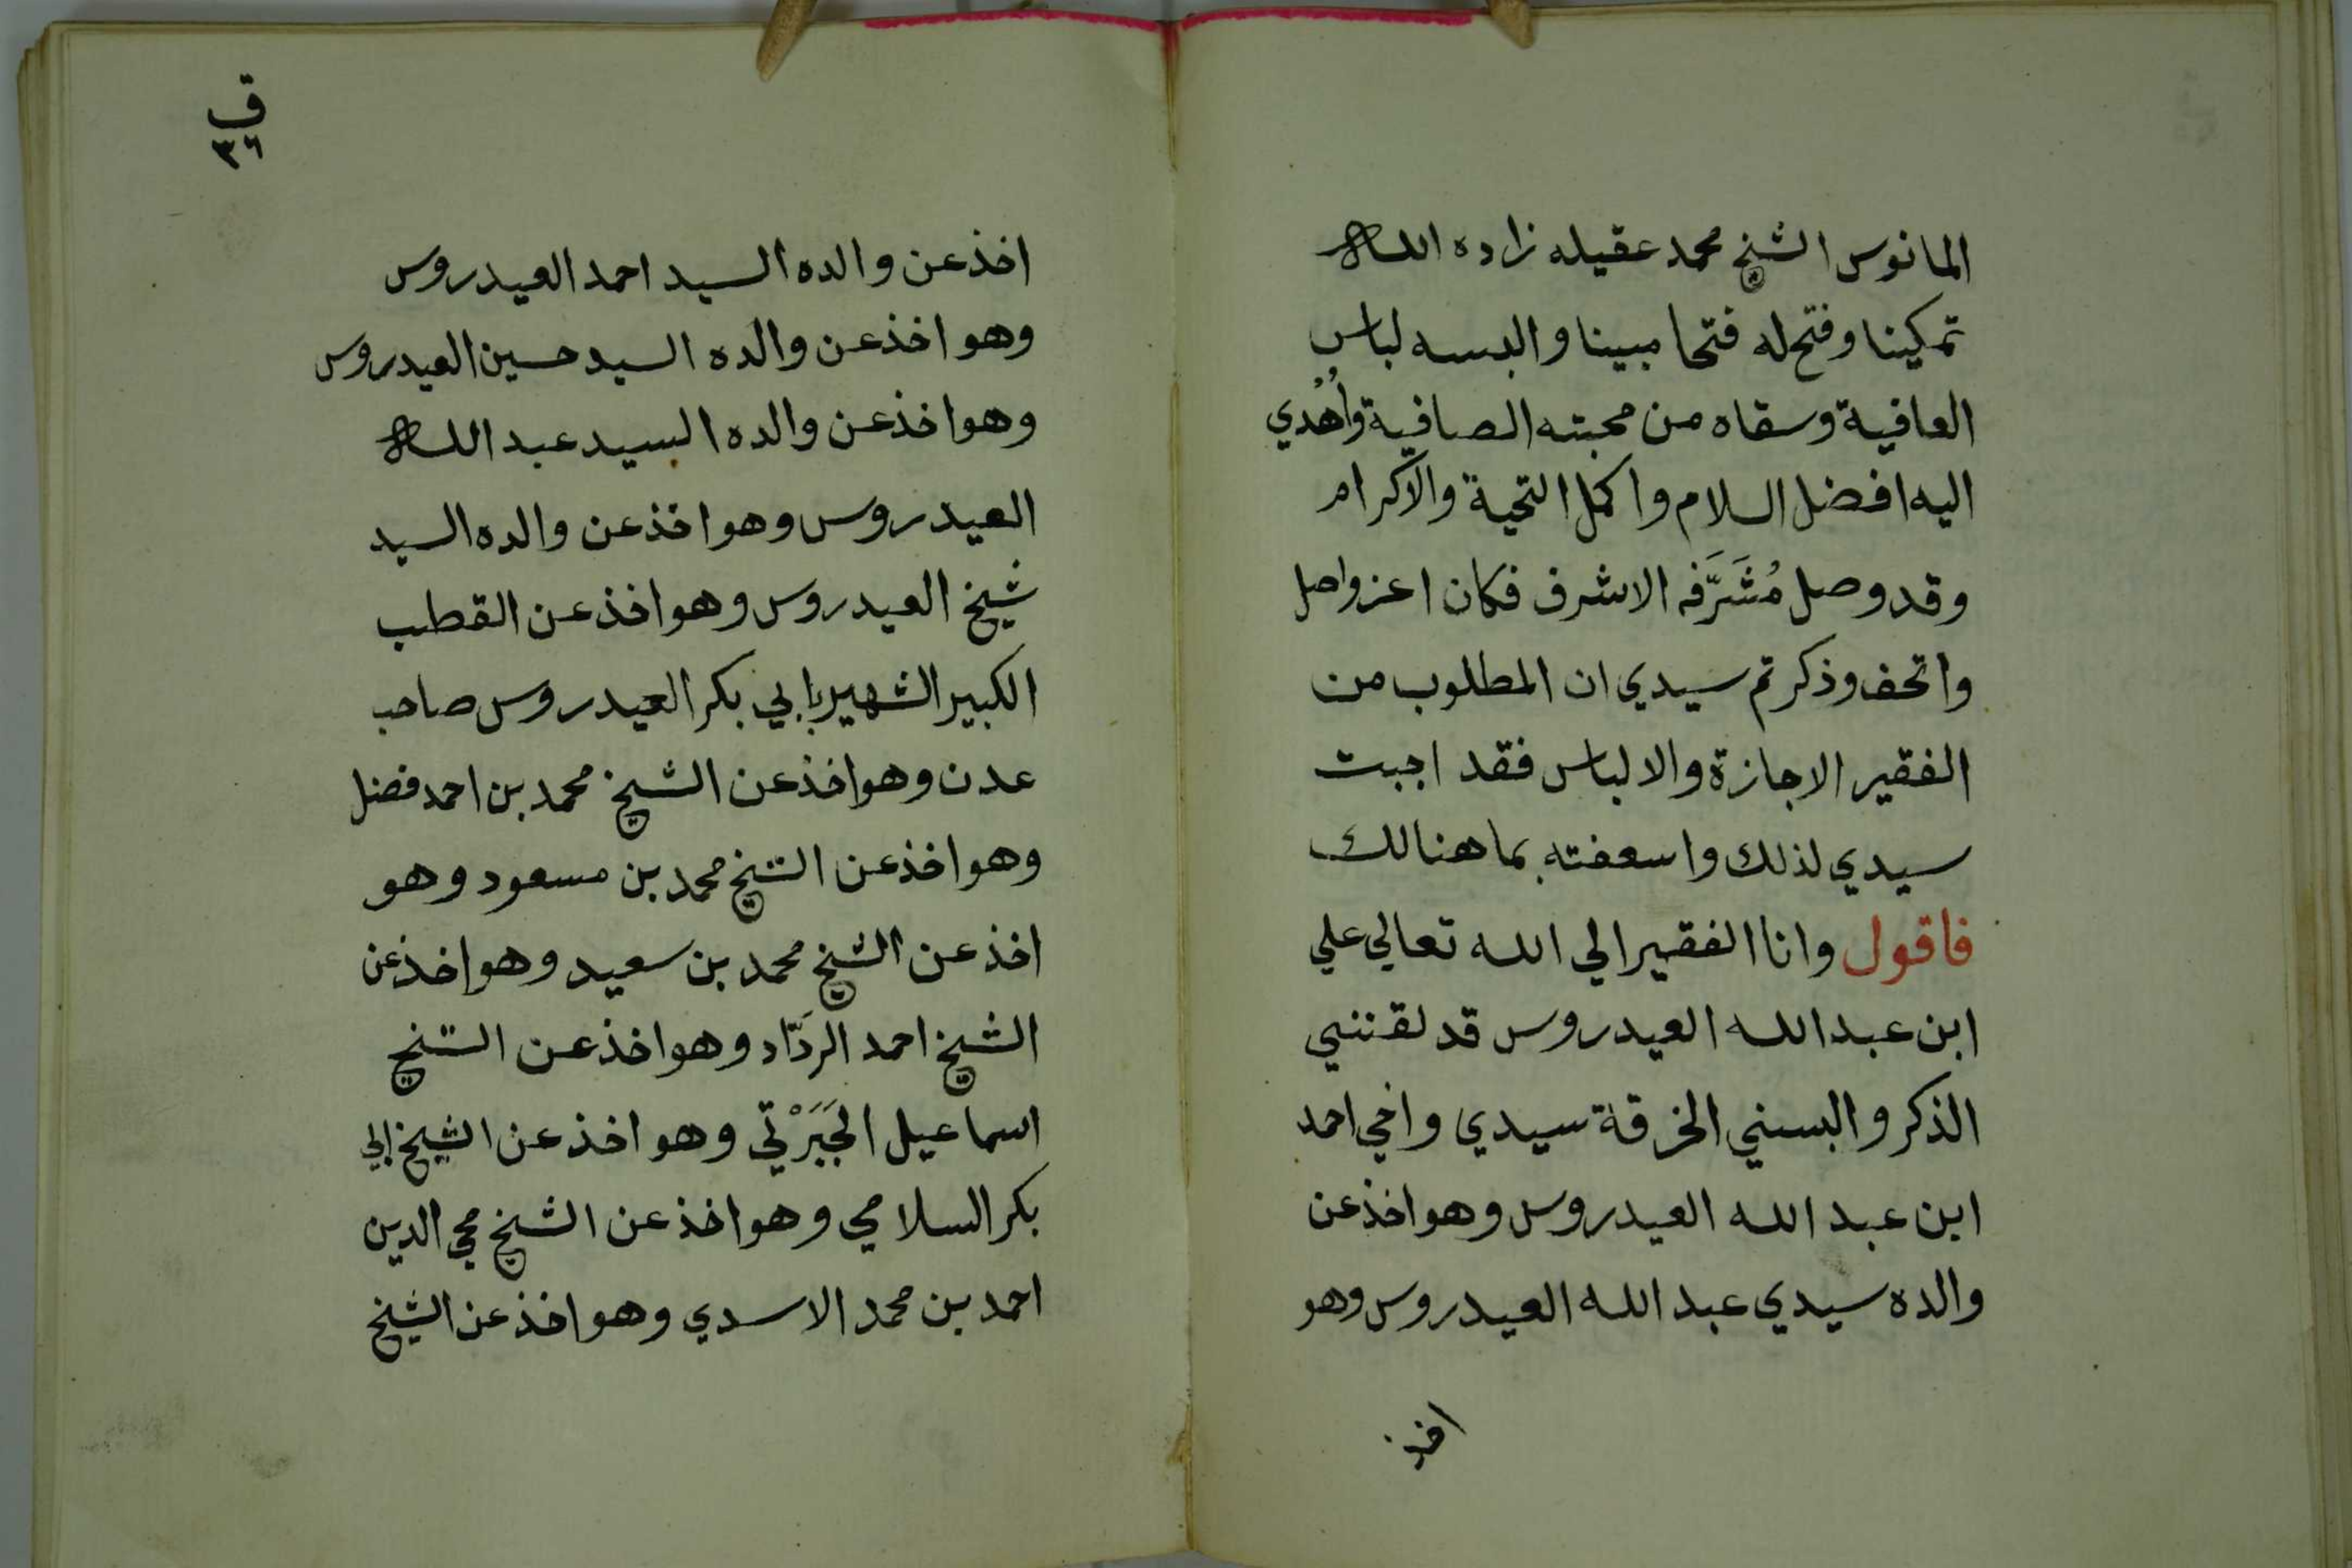 المانوس الشيخ محمد عقيله زاده الله
تمكينا وفتح له فتحا مبينا والبسه لباس
العافية وسقاه من محبته الصافية وأُهْدي
اليه افضل السلام واكمل التحية والاكرام
وقد وصل مُشَرَّفه الاشرف فكان اعز واصل
واتحف وذكرتم سيدي ان المطلوب من
الفقير الاجازة والالباس فقد اجبت
سيدي لذلك واسعفته بما هنالك
فاقول وانا الفقير الي الله تعالي علي
ابن عبد الله العيدروس قد لقنني
الذكر والبسني الخرقة سيدي واخي احمد
ابن عبد الله العيدروس وهو اخذ عن
والده سيدي عبد الله العيدروس وهو
اخذ
ق
٣٦
اخذ عن والده السيد احمد العيدروس
وهو اخذ عن والده السيد حسين العيدروس
وهو اخذ عن والده السيد عبد الله
العيدروس وهو اخذ عن والده السيد
شيخ العيدروس وهو اخذ عن القطب
الكبير الشهير بابي بكر العيدروس صاحب
عدن وهو اخذ عن الشيخ محمد بن احمد فضل
وهو اخذ عن الشيخ محمد بن مسعود وهو
اخذ عن الشيخ محمد بن سعيد وهو اخذ عن
الشيخ احمد الردَّاد وهو اخذ عن الشيخ
اسماعيل الجَبَرْتي وهو اخذ عن الشيخ ابي
بكر السلامي وهو اخذ عن الشيخ محي الدين
احمد بن محمد الاسدي وهو اخذ عن الشيخ